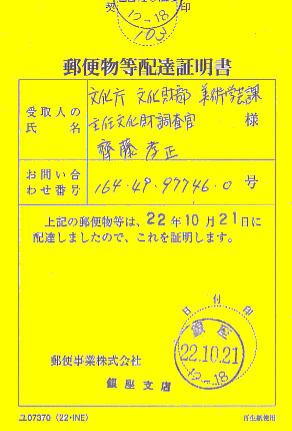 12-18
受 印
103
郵便物等配達証明書
受取人の氏名
文化庁 文化財部 美術学芸課
主任文化財調査官 様
齊藤孝正
お問い合わせ番号
164-49-97746-0 号
上記の郵便物等は、22年10月21日に
配達しましたので、これを証明します。
日付印
銀座
22.10.21
12-18
郵便事業株式会社
銀座支店
07370 (22・INE)
再生紙使用